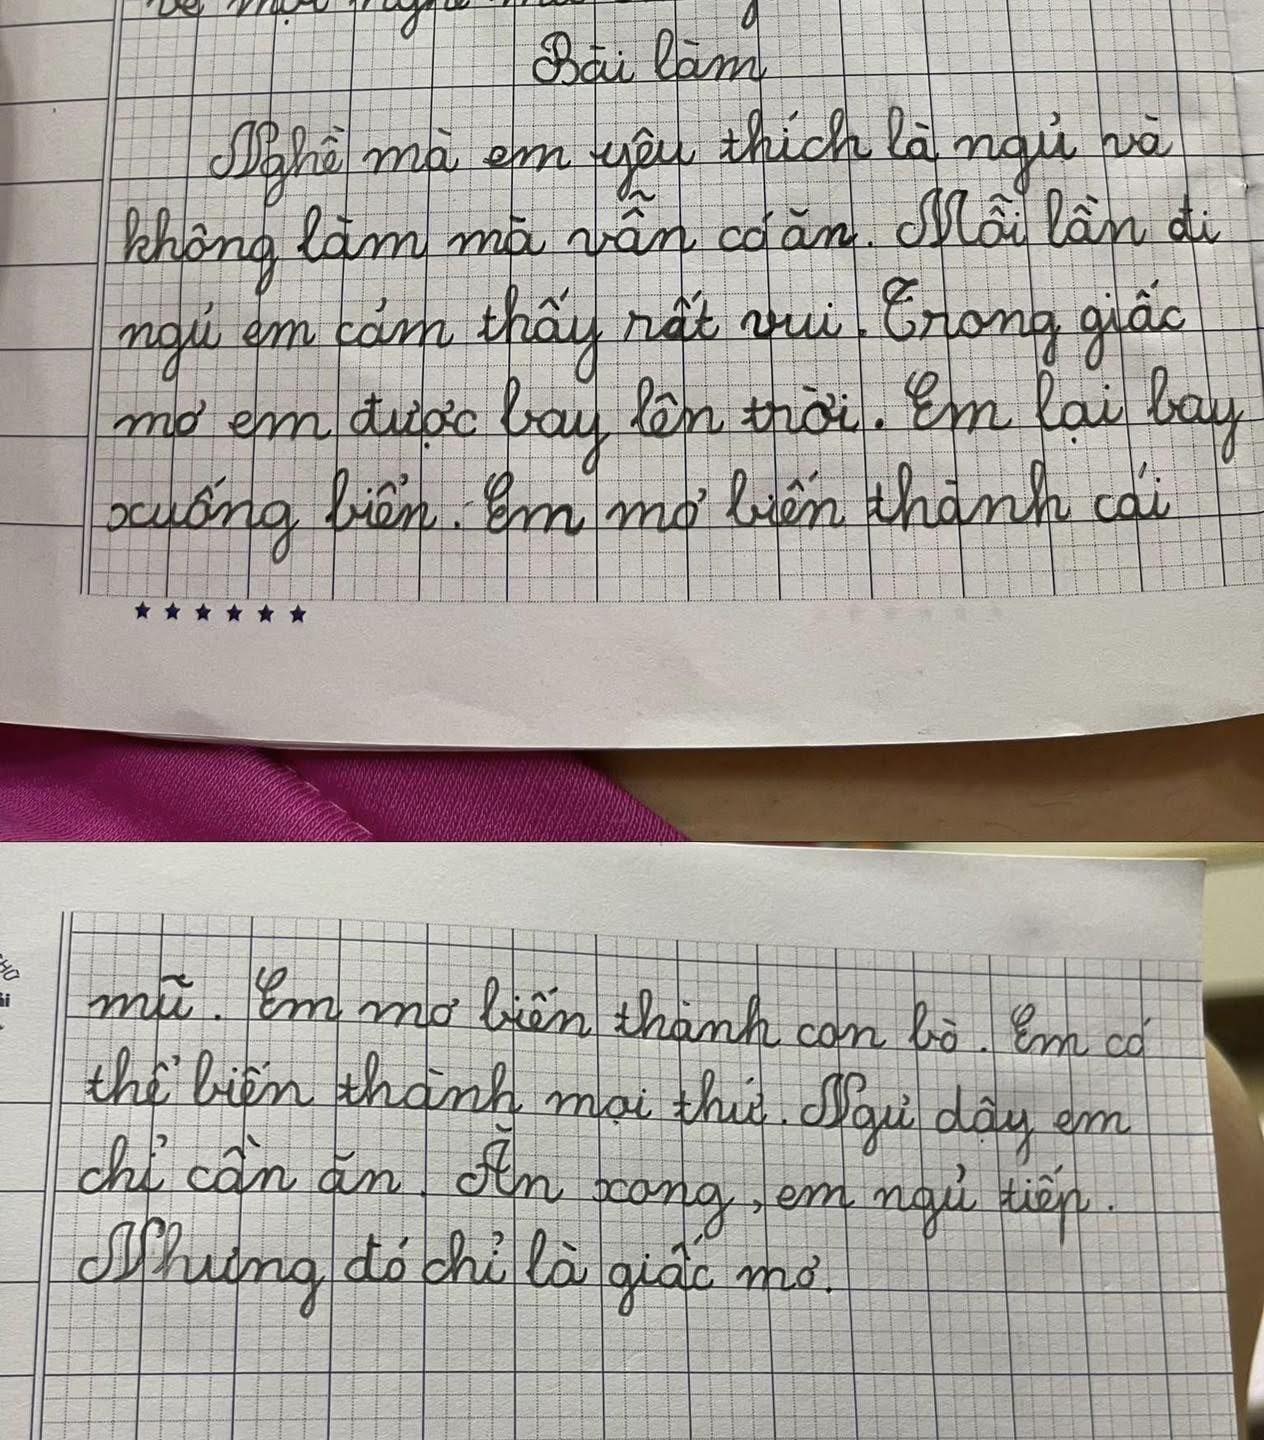 Bài làm
Nghề mà em yêu thích là ngủ và
không làm mà vẫn có ăn. Mỗi lần đi
ngủ em cảm thấy rất vui. Trong giấc
mơ em được bay lên trời. Em lại bay
xuống biển. Em mơ biến thành cái
mũ. Em mơ biến thành con bò. Em có
thể biến thành mọi thứ. Ngủ dậy em
chỉ cần ăn. Ăn xong, em ngủ tiếp.
Nhưng đó chỉ là giấc mơ.